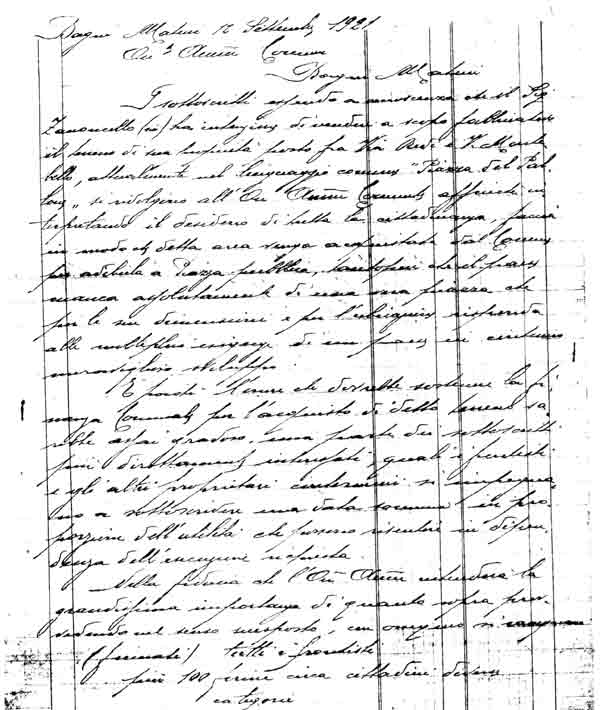 Bagni Montec 12 Settembre 1921
On. Amm Comun
Bagni M
I sottoscritti essendo a conoscenza che il Sig
Zanoncello (sic) ha intenzione di vendere a scopo fabbricativo
il terreno di sua proprietà posto fra Via Redi e V. Monte
bello, attualmente nel linguaggio comune "Piazza del Pal
lone" si rivolgono all'On Amm Comunale affinché in
terpretando il desiderio di tutta la cittadinanza, faccia
in modo ch detta area venga acquistata dal Comune
per adibirla a Piazza pubblica, tantopiù che il paese
manca assolutamente di una vera piazza che
per le sue dimensioni e per l'ubicazione risponda
alle molteplici esigenze di un paese in continuo
meraviglioso sviluppo.
E poiché l'onere che dovrebbe sostenere la fi
nanza Comunale per l'acquisto di detto terreno sa
rebbe assai gravoso, una parte dei sottoscritti
più direttamente interessati, quali i frontisti
e gli altri proprietari si impegna
no a sottoscrivere una data somma in pro
porzione dell'utilità che possono risentire in dipen
denza dell'esecuzione richiesta.
Nella fiducia che l'On Amm intenderà la
grandissima importanza di quanto sopra prov
vedendo nel senso, con ossequio si
(firmati) tutti i frontisti
più 100 firme circa cittadini diverse
categorie